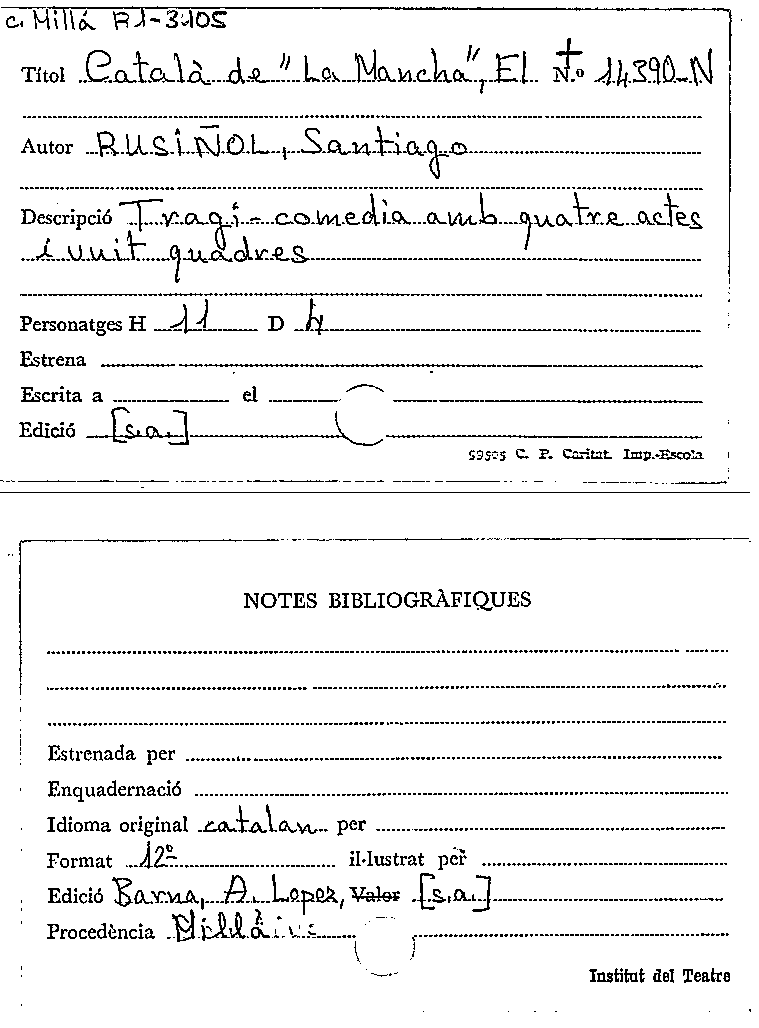 c. Millá R1-3105
Títol Català de "La Mancha", El N.º 14390-N
Autor RUSIÑOL, Santiago
Descripció Tragi-comedia amb quatre actes
i vuit quadres
Personatges H 11 D 4
Estrena
Escrita a el
Edició [s.a.]
99505 C. P. Caritat. Imp.-Escola
NOTES BIBLIOGRÀFIQUES
Estrenada per
Enquadernació
Idioma original catalan per
Format 12º il·lustrat per
Edició Barna, A. Lopez, Valor [s.a.]
Procedència Millà
Institut del Teatre